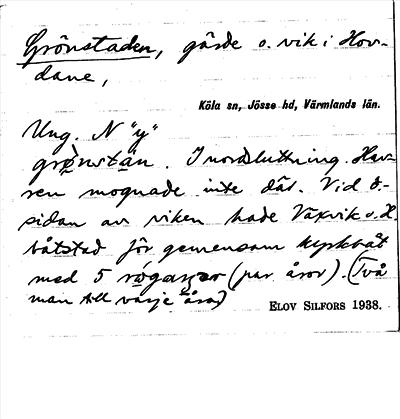 Grönstaden, gärde o. vik i Hov-
dane,
Köla sn, Jösse hd, Värmlands län.
Ung. N "y"
grø̀nstan. I nordsluttning. Hav-
ren mognade inte där. Vid ö.-
sidan av viken hade Växvik o. H.
båtstad för gemensam kyrkbåt
med 5 (par åror). (Två
man till varje åra)
ELOV SILFORS 1938.